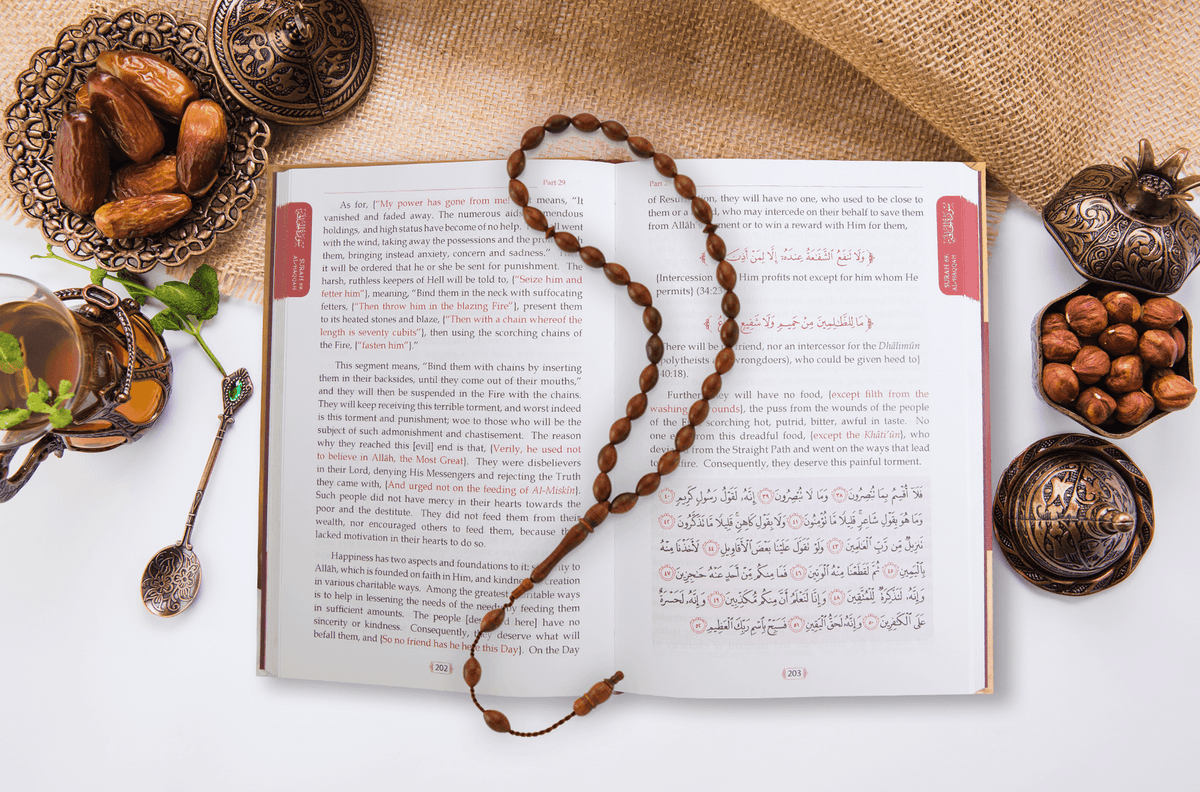 Part 29
سورة الحاقة
SURAH 69.
AL-HAQQAH
As for, {"My power has gone from me means, "It
vanished and faded away. The numerous aides mendous
holdings, and high status have become of no help. went
with the wind, taking away the possessions and the
them, bringing instead anxiety, concern and sadness."
it will be ordered that he or she be sent for punishment. The
harsh, ruthless keepers of Hell will be told to, {"Seize him and
fetter him"}, meaning, "Bind them in the neck with suffocating
fetters, {"Then throw him in the blazing Fire"}, present them
to its heated stones and blaze, {"Then with a chain whereof the
length is seventy cubits"}, then using the scorching chains of
the Fire, {"fasten him"}."
This segment means, "Bind them with chains by inserting
them in their backsides, until they come out of their mouths,"
and they will then be suspended in the Fire with the chains.
They will keep receiving this terrible torment, and worst indeed
is this torment and punishment; woe to those who will be the
subject of such admonishment and chastisement. The reason
why they reached this [evil] end is that, {Verily, he used not
to believe in Allâh, the Most Great}. They were disbelievers
in their Lord, denying His Messengers and rejecting the Truth
they came with, {And urged not on the feeding of Al-Miskîn}.
Such people did not have mercy in their hearts towards the
poor and the destitute. They did not feed them from their
wealth, nor encouraged others to feed them, because
lacked motivation in their hearts to do so.
Happiness has two aspects and foundations to it: to
Allâh, which is founded on faith in Him, and kindness creation
in various charitable ways. Among the greatest charitable ways
is to help in lessening the needs of the needy by feeding them
in sufficient amounts. The people here] have no
sincerity or kindness. Consequently, they deserve what will
befall them, and {So no friend has he here this Day}. On the Day
202
Part
سورة الحاقة
SURAH 69.
AL-HAQQAH
of Resurrection, they will have no one, who used to be close to
them or a who may intercede on their behalf to save them
from Allâh's or to win a reward with Him for them,
﴿وَلَا تَنفَعُ الشَّفَاعَةُ عِندَهُ إِلَّا لِمَنْ أَذِنَ﴾
{Intercession Him profits not except for him whom He
permits} (34:23)
﴿مَا لِلظَّالِمِينَ مِنْ حَمِيمٍ وَلَا شَفِيعٍ﴾
There will be friend, nor an intercessor for the Dhâlimûn
(polytheists wrongdoers), who could be given heed to}
(40:18).
Further they will have no food, {except filth from the
washing wounds}, the puss from the wounds of the people
of the scorching hot, putrid, bitter, awful in taste. No
one from this dreadful food, {except the Khâti'ûn}, who
from the Straight Path and went on the ways that lead
to fire. Consequently, they deserve this painful torment.
فَلَا أُقْسِمُ بِمَا تُبْصِرُونَ ٣٨ وَمَا لَا تُبْصِرُونَ ٣٩ إِنَّهُ لَقَوْلُ رَسُولٍ كَرِيمٍ ٤٠
وَمَا هُوَ بِقَوْلِ شَاعِرٍ قَلِيلًا مَّا تُؤْمِنُونَ ٤١ وَلَا بِقَوْلِ كَاهِنٍ قَلِيلًا مَّا تَذَكَّرُونَ ٤٢
تَنزِيلٌ مِّن رَّبِّ الْعَالَمِينَ ٤٣ وَلَوْ تَقَوَّلَ عَلَيْنَا بَعْضَ الْأَقَاوِيلِ ٤٤ لَأَخَذْنَا مِنْهُ
بِالْيَمِينِ ٤٥ ثُمَّ لَقَطَعْنَا مِنْهُ الْوَتِينَ ٤٦ فَمَا مِنكُم مِّنْ أَحَدٍ عَنْهُ حَاجِزِينَ ٤٧
وَإِنَّهُ لَتَذْكِرَةٌ لِّلْمُتَّقِينَ ٤٨ وَإِنَّا لَنَعْلَمُ أَنَّ مِنكُم مُّكَذِّبِينَ ٤٩ وَإِنَّهُ لَحَسْرَةٌ
عَلَى الْكَافِرِينَ ٥٠ وَإِنَّهُ لَحَقُّ الْيَقِينِ ٥١ فَسَبِّحْ بِاسْمِ رَبِّكَ الْعَظِيمِ ٥٢
203